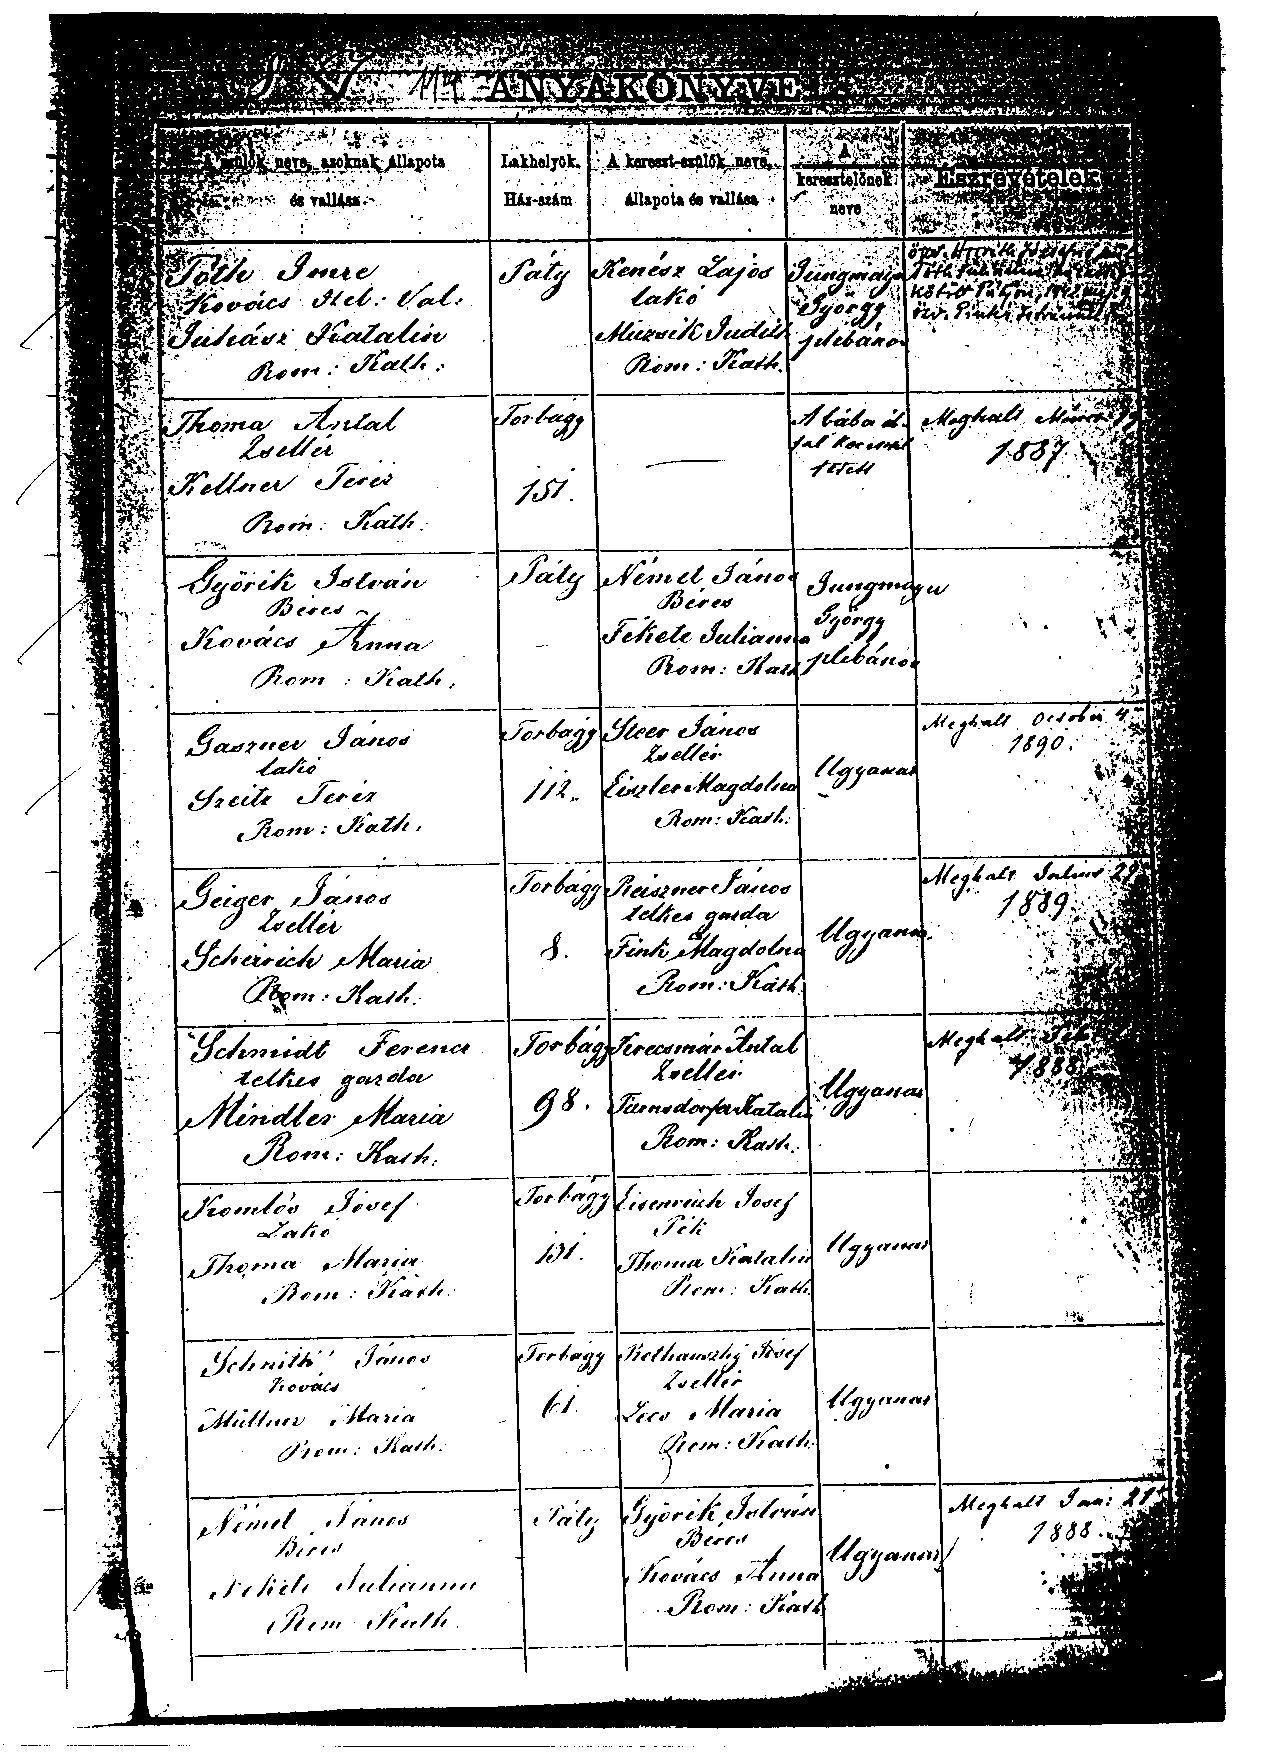 114 ANYAKÖNYVE.
A szülők neve, azoknak állapota
és vallása.
Lakhelyök.
Ház-szám
A kereszt-szülők neve,
állapota és vallása
A
keresztelőnek
neve
Észrevételek
Tóth Imre
Kovács Hel: Val:
Juhász Katalin
Rom: Kath:
Páty
Kenész Lajos
lakó
Muzsik Judit
Rom: Kath.
Jungmayer
György
plébános
özv.
Thoma Antal
Zsellér
Kellner Teréz
Rom: Kath:
Torbágy
151.
A bába ál-
tal
Meghalt
1887.
Györik István
Béres
Kovács Anna
Rom: Kath.
Páty
Német János
Béres
Fekete Julianna
Rom: Kath
Jungmayer
György
plébános
Gaszner János
lakó
Szeitz Teréz
Rom: Kath.
Torbágy
112.
Steer János
Zsellér
Eiszler Magdolna
Rom: Kath:
Ugyanaz
Meghalt October 4
1890.
Geiger János
Zsellér
Scheirich Maria
Rom: Kath:
Torbágy
8.
Reiszner János
telkes gazda
Fink Magdolna
Rom: Kath:
Ugyanaz.
Meghalt Julius 29
1889.
Schmidt Ferencz
telkes gazda
Mindler Maria
Rom: Kath:
Torbágy
98.
Kerecsmár Antal
Zsellér
Katalin
Rom: Kath:
Ugyanaz
Meghalt Feb
1888
Komlós Josef
Lakó
Thoma Maria
Rom: Kath:
Torbágy
131.
Eisenreich Josef
Pék
Thoma Katalin
Rom: Kath
Ugyanaz
János
Kovács
Müllner Maria
Rom: Kath:
Torbágy
61.
Josef
Zsellér
Maria
Rom: Kath.
Ugyanaz
Német János
Béres
Fekete Julianna
Rom: Kath.
Páty
Györik István
Béres
Kovács Anna
Rom: Kath
Ugyanaz
Meghalt Juni 21
1888.